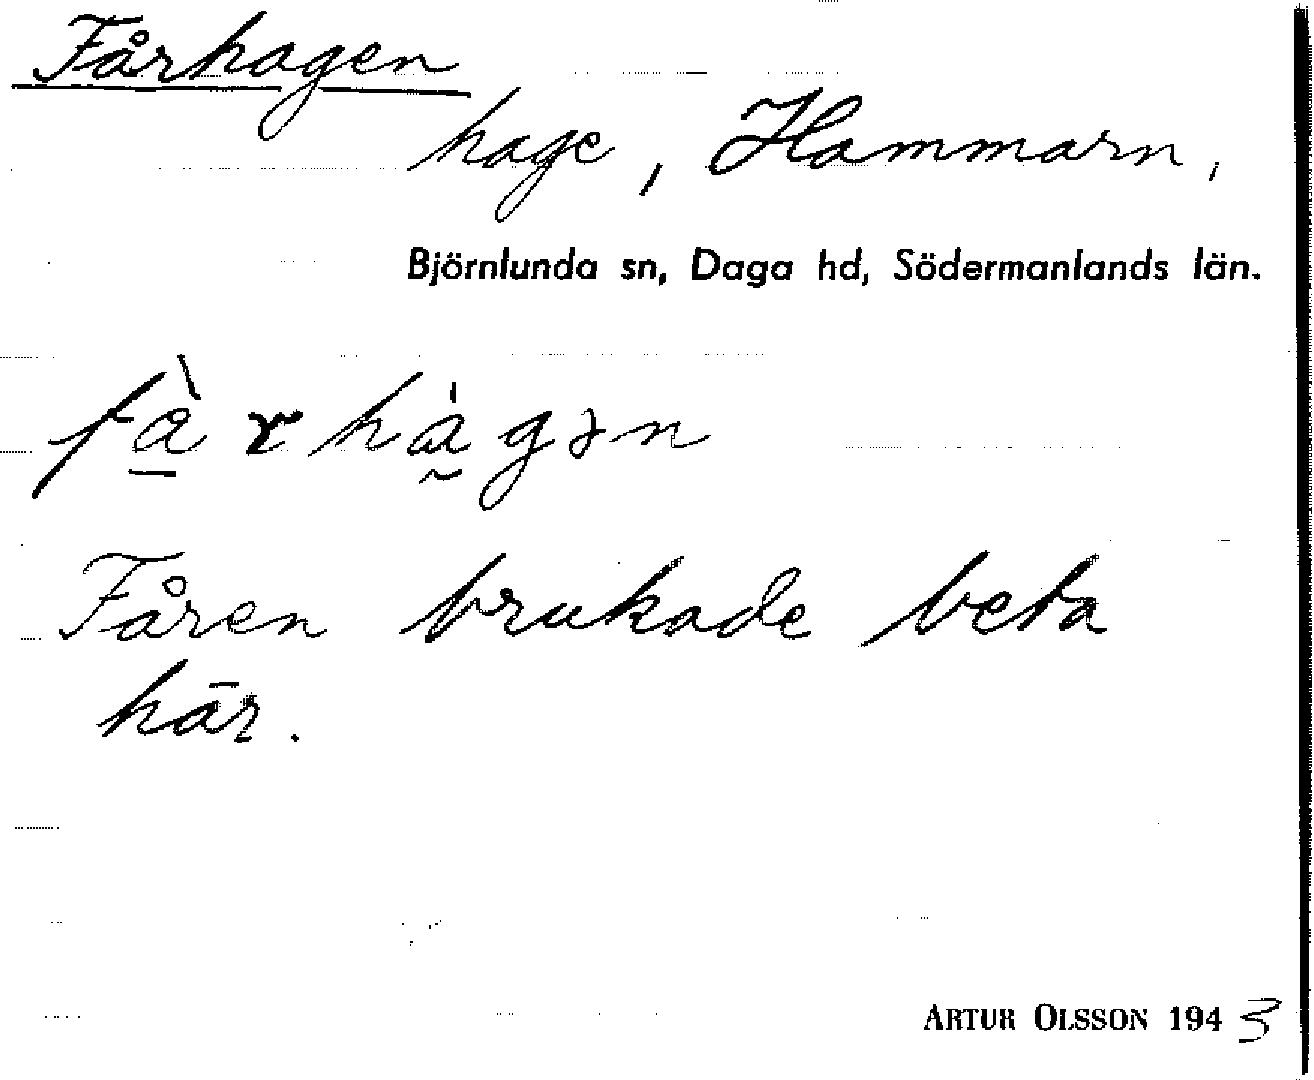 Fårhagen
hage, Hammarn,
Björnlunda sn, Daga hd, Södermanlands län.
fà̱rhà̰gən
Fåren brukade beta
här.
ARTUR OLSSON 1943